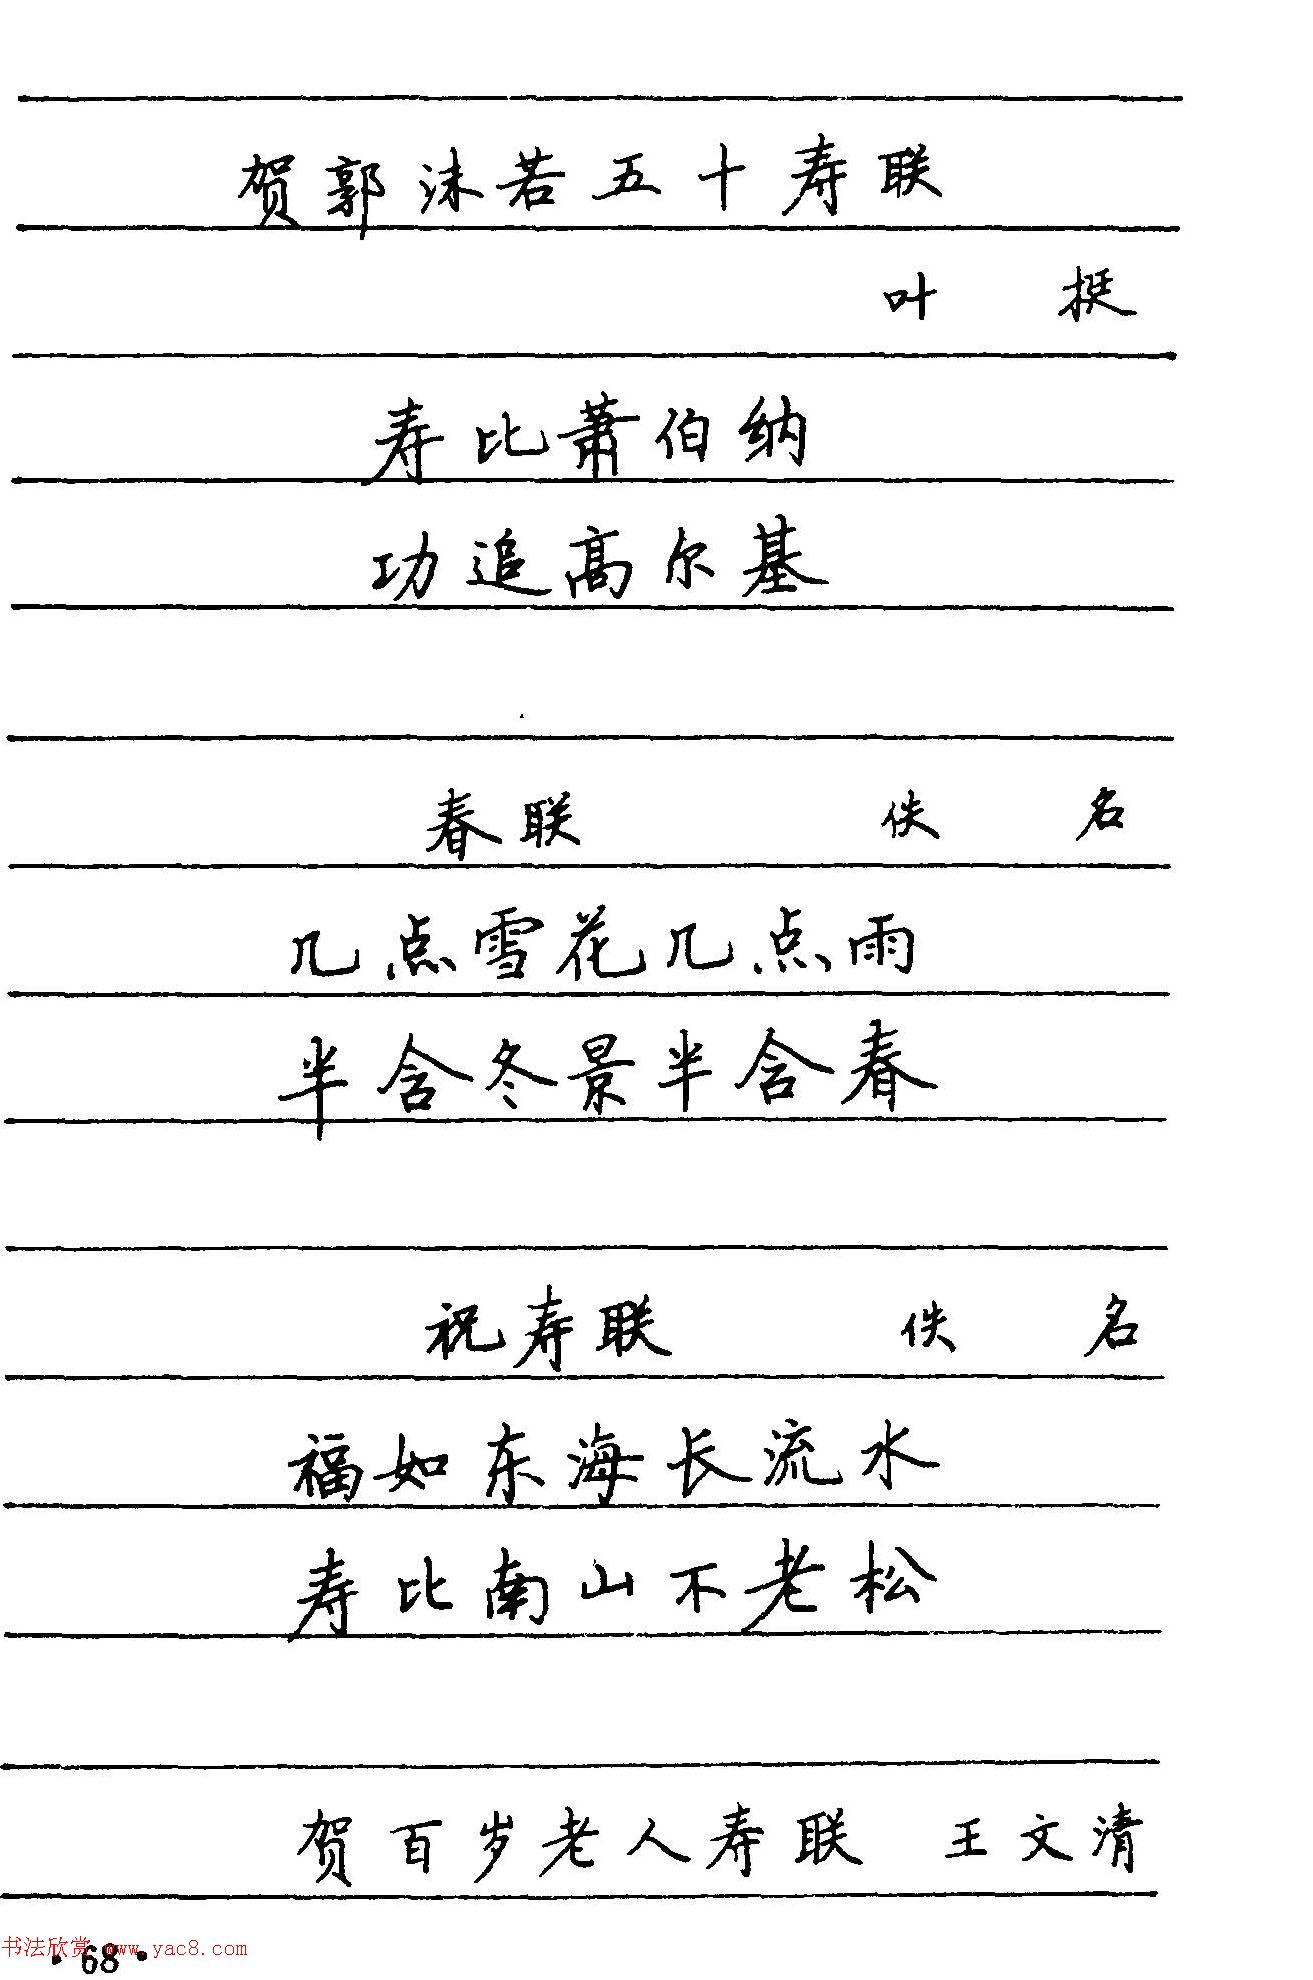 贺郭沫若五十寿联
叶 挺
寿比萧伯纳
功追高尔基
春联 佚 名
几点雪花几点雨
半含冬景半含春
祝寿联 佚 名
福如东海长流水
寿比南山不老松
贺百岁老人寿联 王文清
书法欣赏 www.yac8.com
·68·